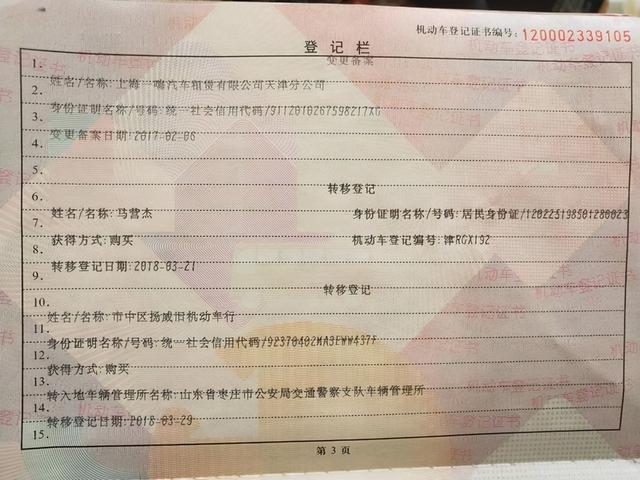 机动车登记证书编号:120002339105
登记栏
1. 变更备案
2. 姓名/名称:上海一嗨汽车租赁有限公司天津分公司
3. 身份证明名称/号码:统一社会信用代码/9112010267598217XG
4. 变更备案日期:2017-02-06
5.
6. 转移登记
7. 姓名/名称:马营杰 身份证明名称/号码:居民身份证/120225198501280023
8. 获得方式:购买 机动车登记编号:津RGX192
9. 转移登记日期:2018-03-21
10. 转移登记
11. 姓名/名称:市中区扬威旧机动车行
12. 身份证明名称/号码:统一社会信用代码/92370402MA3EWW437F
13. 获得方式:购买
14. 转入地车辆管理所名称:山东省枣庄市公安局交通警察支队车辆管理所
15. 转移登记日期:2018-03-29
第3页